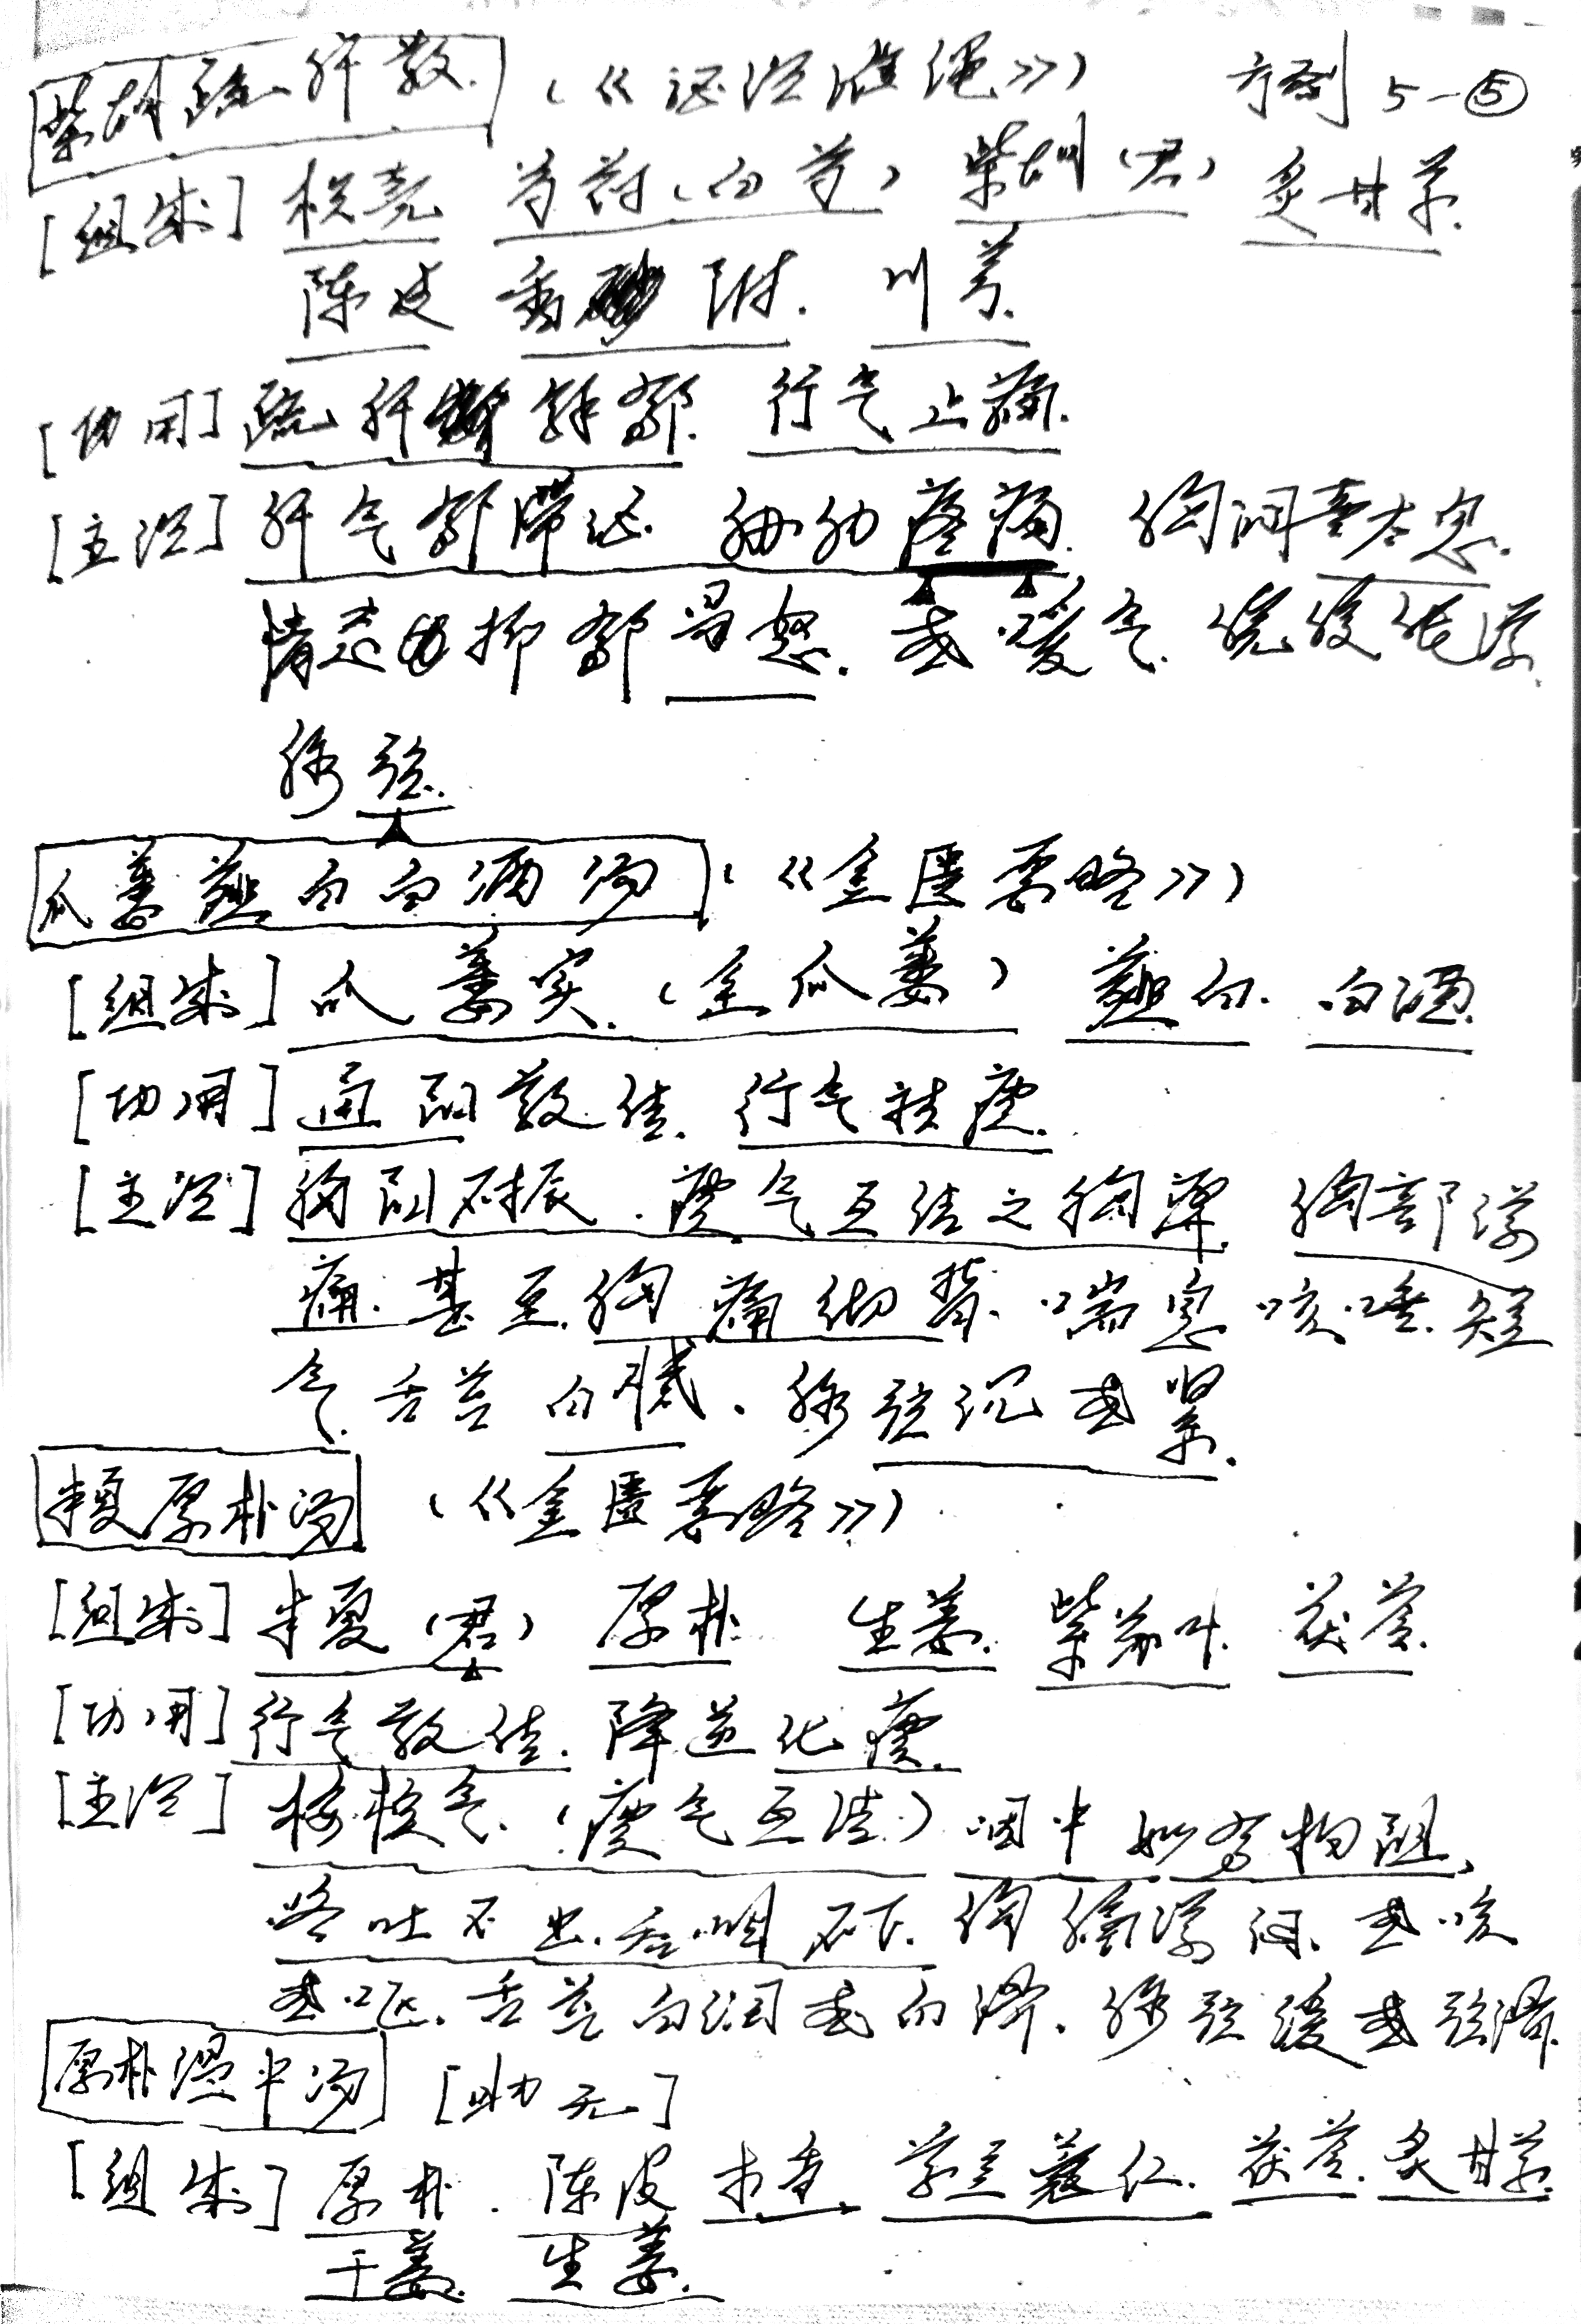 柴胡疏肝散 (《证治准绳》) 方剂 5-⑤
[组成] 枳壳 芍药(白芍) 柴胡(君) 炙甘草.
陈皮 香附. 川芎.
[功用] 疏肝解郁. 行气止痛.
[主治] 肝气郁滞证. 胁肋疼痛. 胸闷善太息.
情志抑郁易怒. 或嗳气. 脘腹胀满.
脉弦.
瓜蒌薤白白酒汤 (《金匮要略》)
[组成] 瓜蒌实. (全瓜蒌) 薤白. 白酒.
[功用] 通阳散结. 行气祛痰.
[主治] 胸阳不振. 痰气互结之胸痹. 胸部满
痛. 甚至胸痛彻背. 喘息咳唾. 短
气. 舌苔白腻. 脉弦沉或紧.
半夏厚朴汤 (《金匮要略》)
[组成] 半夏(君) 厚朴 生姜. 紫苏叶. 茯苓.
[功用] 行气散结. 降逆化痰.
[主治] 梅核气. (痰气互结.) 咽中如有物阻,
咯吐不出. 吞咽不下. 胸膈满闷. 或咳
或呕. 舌苔白润或白滑. 脉弦缓或弦滑.
厚朴温中汤 [助无]
[组成] 厚朴. 陈皮 木香. 草豆蔻仁. 茯苓. 炙甘草.
干姜. 生姜.